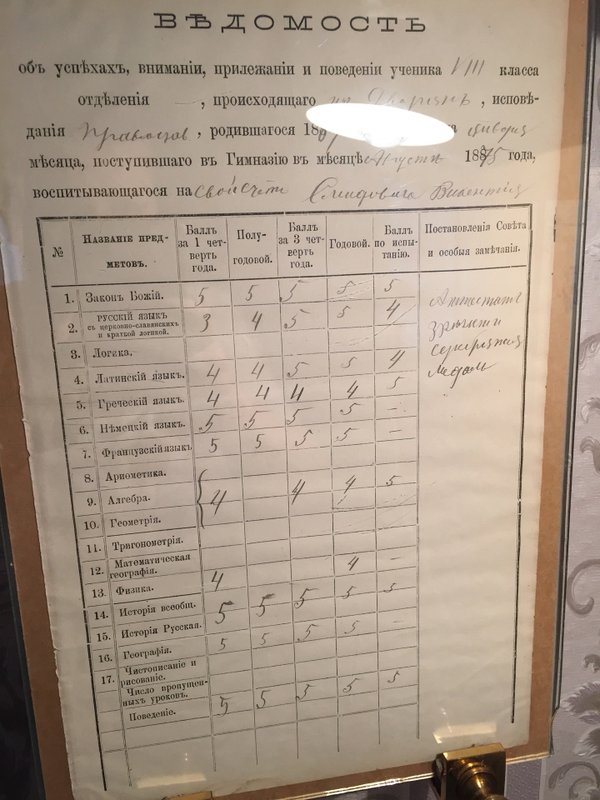 ВѢДОМОСТЬ
объ успѣхахъ, вниманіи, прилежаніи и поведеніи ученика VIII класса
отдѣленія — , происходящаго изъ Дворянъ , исповѣ-
данія Православ , родившагося 186 января
мѣсяца, поступившаго въ Гимназію въ мѣсяцѣ Августѣ 1885 года,
воспитывающагося на свой счетъ Смидовича Викентія
№ Названіе пред-метовъ. Баллъ за 1 чет-верть года. Полу-годовой. Баллъ за 3 чет-верть года. Годовой. Баллъ по испы-танію. Постановленія Совѣта и особыя замѣчанія.
1. Законъ Божій. 5 5 5 5 5 Аттестатъ
2. РУССКІЙ ЯЗЫКЪ съ церковно-славянскихъ и краткой логикой. 3 4 5 5 4 зрѣлости и
3. Логика. серебряная
4. Латинскій языкъ. 4 4 5 5 4 медаль
5. Греческій языкъ. 4 4 4 4 5
6. Нѣмецкій языкъ. 5 5 5 5 —
7. Французскій языкъ 5 5 5 5 —
8. Ариѳметика.
9. Алгебра. 4 4 4 5
10. Геометрія.
11. Тригонометрія.
12. Математическая географія. 4 —
13. Физика. 4
14. Исторія всеобщ. 5 5 5 5 5
15. Исторія Русская.
16. Географія. 5 5 5 5 —
17. Чистописаніе и рисованіе.
Число пропущен-ныхъ уроковъ.
Поведеніе. 5 5 5 5 5